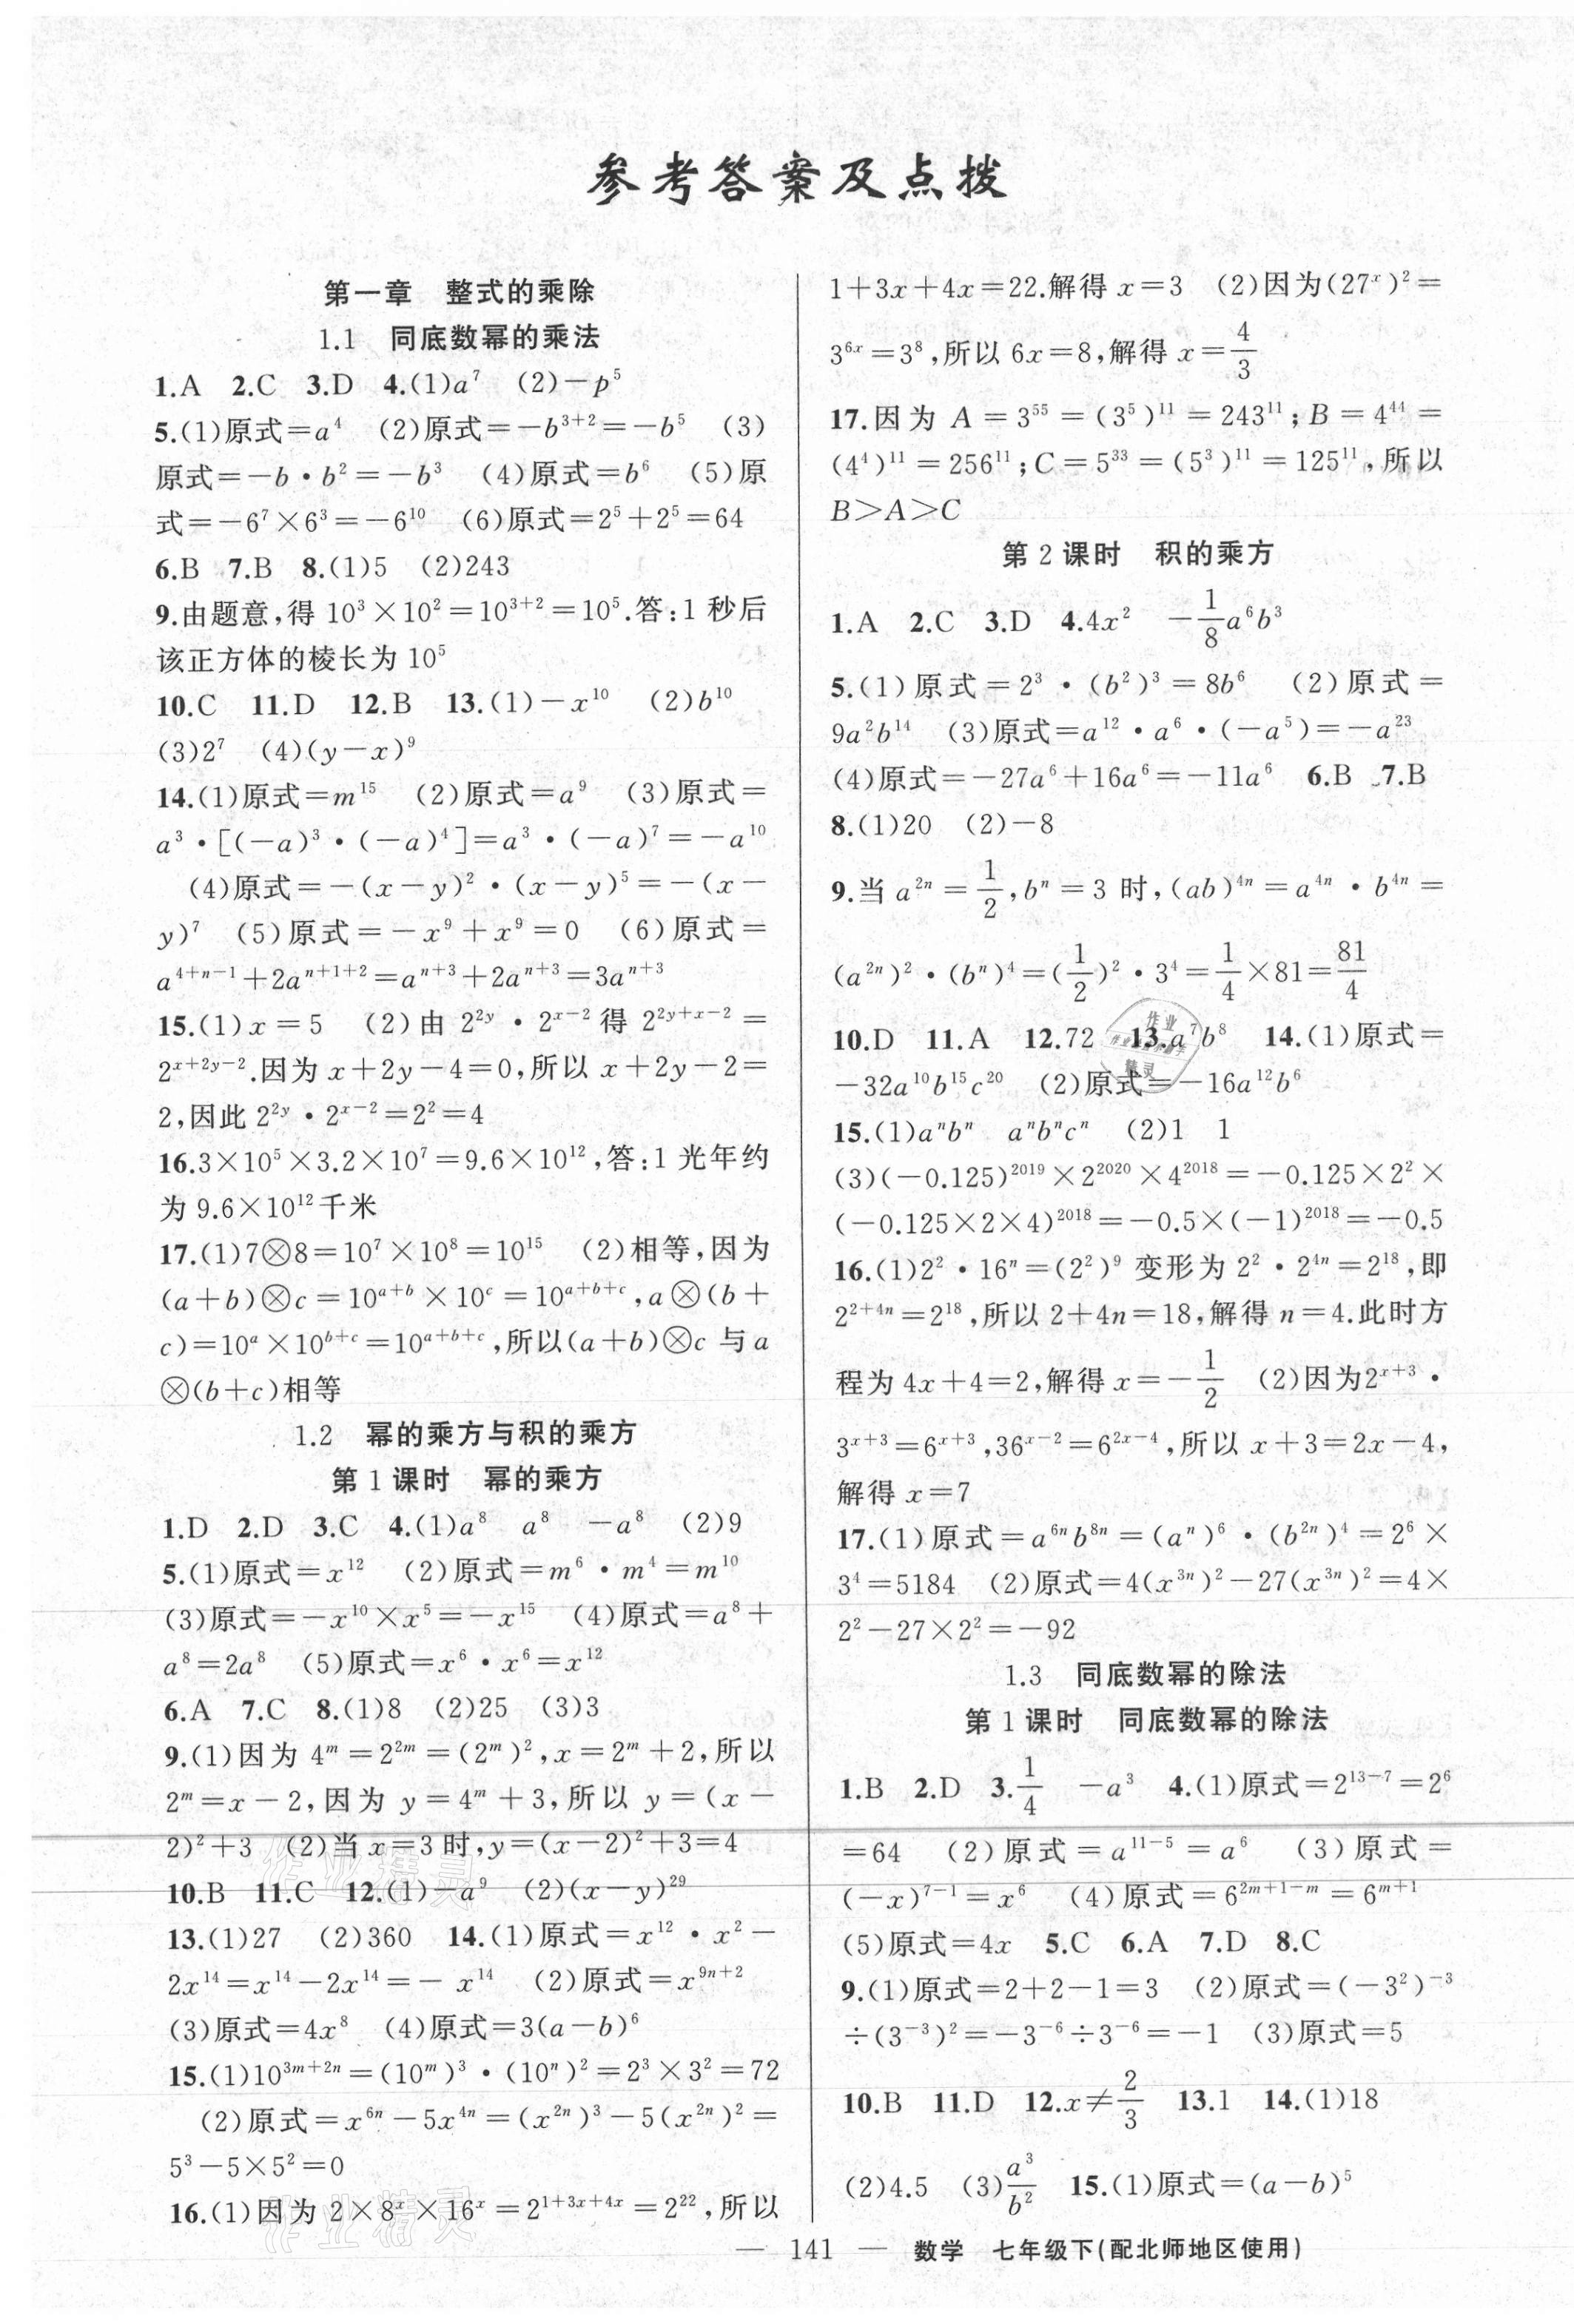 参考答案及点拨
第一章 整式的乘除
1.1 同底数幂的乘法
1.A 2.C 3.D 4.(1)a⁷ (2)－p⁵
5.(1)原式=a⁴ (2)原式=－b³⁺²=－b⁵ (3)
原式=－b·b²=－b³ (4)原式=b⁶ (5)原
式=－6⁷×6³=－6¹⁰ (6)原式=2⁵＋2⁵=64
6.B 7.B 8.(1)5 (2)243
9.由题意,得 10³×10²=10³⁺²=10⁵.答:1 秒后
该正方体的棱长为 10⁵
10.C 11.D 12.B 13.(1)－x¹⁰ (2)b¹⁰
(3)2⁷ (4)(y－x)⁹
14.(1)原式=m¹⁵ (2)原式=a⁹ (3)原式=
a³·[(－a)³·(－a)⁴]=a³·(－a)⁷=－a¹⁰
(4)原式=－(x－y)²·(x－y)⁵=－(x－
y)⁷ (5)原式=－x⁹＋x⁹=0 (6)原式=
a^{4+n-1}＋2a^{n+1+2}=a^{n+3}＋2a^{n+3}=3a^{n+3}
15.(1)x=5 (2)由 2^{2y}·2^{x-2} 得 2^{2y+x-2}=
2^{x+2y-2}.因为 x＋2y－4=0,所以 x＋2y－2=
2,因此 2^{2y}·2^{x-2}=2²=4
16.3×10⁵×3.2×10⁷=9.6×10¹²,答:1 光年约
为 9.6×10¹²千米
17.(1)7⊗8=10⁷×10⁸=10¹⁵ (2)相等,因为
(a＋b)⊗c=10^{a+b}×10^c=10^{a+b+c},a⊗(b＋
c)=10^a×10^{b+c}=10^{a+b+c},所以(a＋b)⊗c 与 a
⊗(b＋c)相等
1.2 幂的乘方与积的乘方
第 1 课时 幂的乘方
1.D 2.D 3.C 4.(1)a⁸ a⁸ －a⁸ (2)9
5.(1)原式=x¹² (2)原式=m⁶·m⁴=m¹⁰
(3)原式=－x¹⁰×x⁵=－x¹⁵ (4)原式=a⁸＋
a⁸=2a⁸ (5)原式=x⁶·x⁶=x¹²
6.A 7.C 8.(1)8 (2)25 (3)3
9.(1)因为 4^m=2^{2m}=(2^m)²,x=2^m＋2,所以
2^m=x－2,因为 y=4^m＋3,所以 y=(x－
2)²＋3 (2)当 x=3 时,y=(x－2)²＋3=4
10.B 11.C 12.(1)－a⁹ (2)(x－y)²⁹
13.(1)27 (2)360 14.(1)原式=x¹²·x²－
2x¹⁴=x¹⁴－2x¹⁴=－x¹⁴ (2)原式=x^{9n+2}
(3)原式=4x⁸ (4)原式=3(a－b)⁶
15.(1)10^{3m+2n}=(10^m)³·(10^n)²=2³×3²=72
(2)原式=x^{6n}－5x^{4n}=(x^{2n})³－5(x^{2n})²=
5³－5×5²=0
16.(1)因为 2×8^x×16^x=2^{1+3x+4x}=2²²,所以
1＋3x＋4x=22.解得 x=3 (2)因为(27^x)²=
3^{6x}=3⁸,所以 6x=8,解得 x=4/3
17.因为 A=3⁵⁵=(3⁵)¹¹=243¹¹;B=4⁴⁴=
(4⁴)¹¹=256¹¹;C=5³³=(5³)¹¹=125¹¹,所以
B>A>C
第 2 课时 积的乘方
1.A 2.C 3.D 4.4x² －1/8 a⁶b³
5.(1)原式=2³·(b²)³=8b⁶ (2)原式=
9a²b¹⁴ (3)原式=a¹²·a⁶·(－a⁵)=－a²³
(4)原式=－27a⁶＋16a⁶=－11a⁶ 6.B 7.B
8.(1)20 (2)－8
9.当 a^{2n}=1/2,b^n=3 时,(ab)^{4n}=a^{4n}·b^{4n}=
(a^{2n})²·(b^n)⁴=(1/2)²·3⁴=1/4×81=81/4
10.D 11.A 12.72 13.a⁷b⁸ 14.(1)原式=
－32a¹⁰b¹⁵c²⁰ (2)原式=－16a¹²b⁶
15.(1)a^nb^n a^nb^nc^n (2)1 1
(3)(－0.125)²⁰¹⁹×2²⁰²⁰×4²⁰¹⁸=－0.125×2²×
(－0.125×2×4)²⁰¹⁸=－0.5×(－1)²⁰¹⁸=－0.5
16.(1)2²·16^n=(2²)⁹ 变形为 2²·2^{4n}=2¹⁸,即
2^{2+4n}=2¹⁸,所以 2＋4n=18,解得 n=4.此时方
程为 4x＋4=2,解得 x=－1/2 (2)因为2^{x+3}·
3^{x+3}=6^{x+3},36^{x-2}=6^{2x-4},所以 x＋3=2x－4,
解得 x=7
17.(1)原式=a^{6n}b^{8n}=(a^n)⁶·(b^{2n})⁴=2⁶×
3⁴=5184 (2)原式=4(x^{3n})²－27(x^{3n})²=4×
2²－27×2²=－92
1.3 同底数幂的除法
第 1 课时 同底数幂的除法
1.B 2.D 3.1/4 －a³ 4.(1)原式=2^{13-7}=2⁶
=64 (2)原式=a^{11-5}=a⁶ (3)原式=
(－x)^{7-1}=x⁶ (4)原式=6^{2m+1-m}=6^{m+1}
(5)原式=4x 5.C 6.A 7.D 8.C
9.(1)原式=2＋2－1=3 (2)原式=(－3²)⁻³
÷(3⁻³)²=－3⁻⁶÷3⁻⁶=－1 (3)原式=5
10.B 11.D 12.x≠2/3 13.1 14.(1)18
(2)4.5 (3)a³/b² 15.(1)原式=(a－b)⁵
— 141 — 数学 七年级下(配北师地区使用)
作业精灵
作业精灵